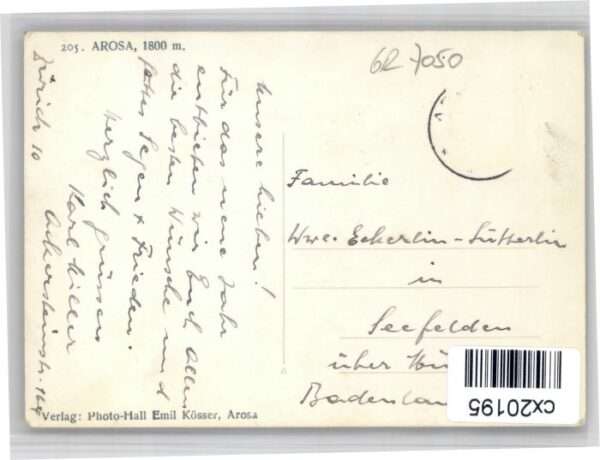 205. AROSA, 1800 m.
GR 7050
Unsere Lieben!
Für das neue Jahr
entbieten wir Euch Allen
die besten Wünsche und
Gottes Segen & Frieden.
Herzlich grüssen
Karl Hiller
Ackersteinstr. 164
Zürich 10
Familie
Wwe. Eckerlin-Sütterlin
in
Seefelden
über
Badenla
Verlag: Photo-Hall Emil Kösser, Arosa
cx20195